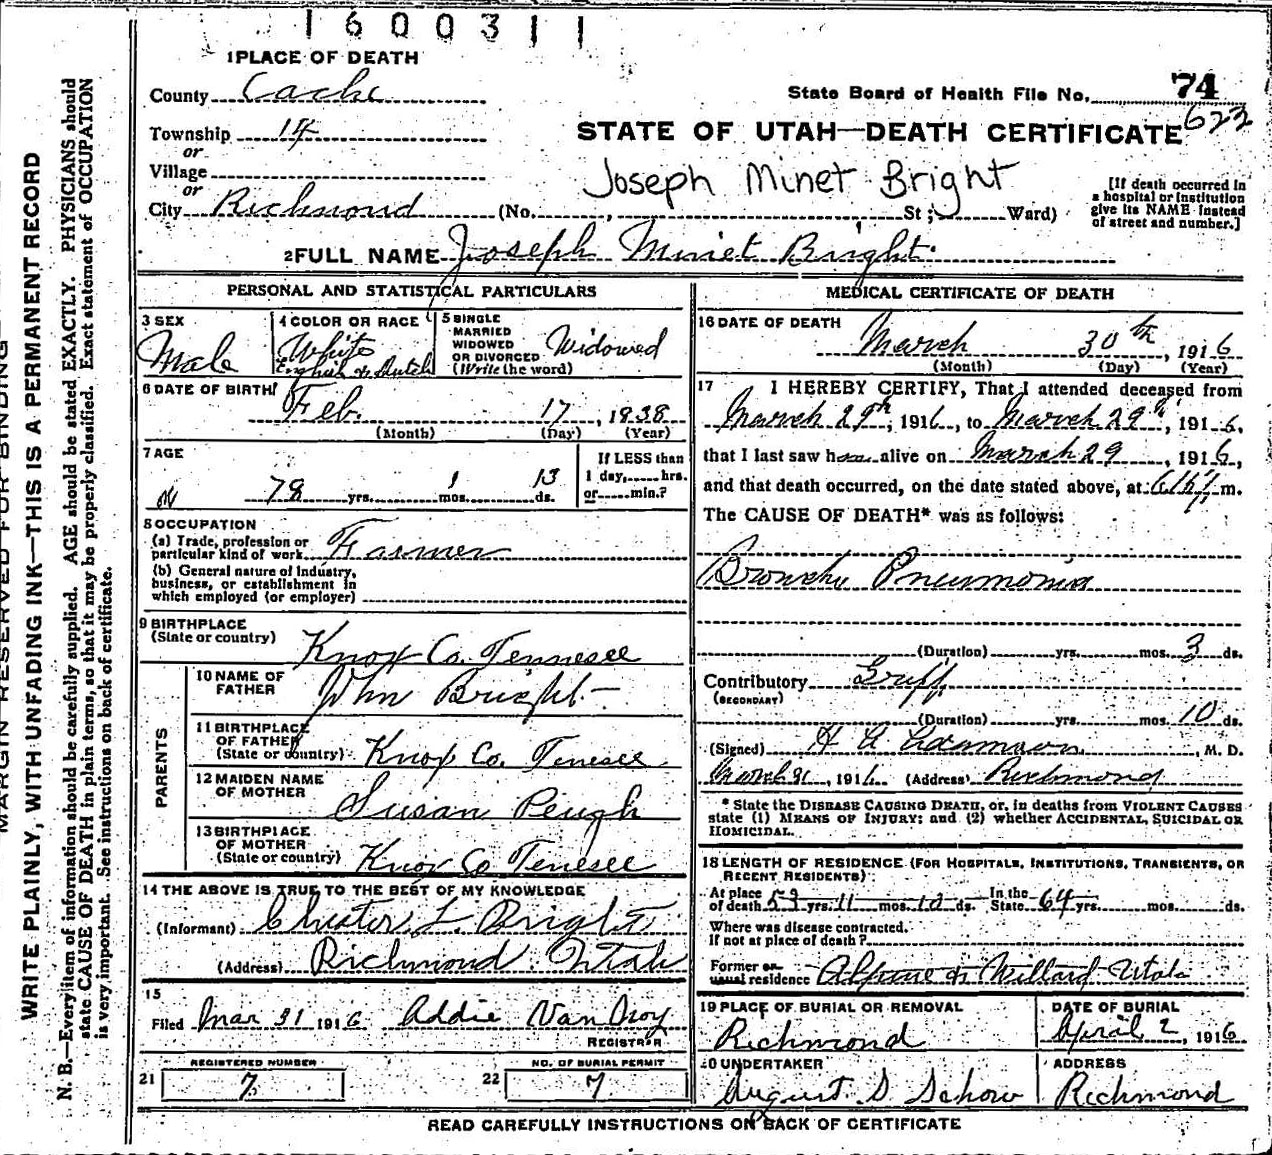 1600311
1 PLACE OF DEATH
County Cache
State Board of Health File No. 74
622
Township 14
STATE OF UTAH—DEATH CERTIFICATE
or
Village
or
Joseph Minet Bright
City Richmond (No. , St; Ward)
[If death occurred in
a hospital or institution
give its NAME instead
of street and number.]
2 FULL NAME Joseph Minet Bright
PERSONAL AND STATISTICAL PARTICULARS
3 SEX
Male
4 COLOR OR RACE
White
English & Dutch
5 SINGLE
MARRIED
WIDOWED
OR DIVORCED
(Write the word)
Widowed
6 DATE OF BIRTH
Feb. 17, 1838
(Month) (Day) (Year)
7 AGE
78 yrs. 1 mos. 13 ds.
If LESS than
1 day, hrs.
or min.?
8 OCCUPATION
(a) Trade, profession or
particular kind of work Farmer
(b) General nature of industry,
business, or establishment in
which employed (or employer)
9 BIRTHPLACE
(State or country)
Knox Co. Tennesee
PARENTS
10 NAME OF
FATHER
John Bright
11 BIRTHPLACE
OF FATHER
(State or country) Knox Co. Tenesee
12 MAIDEN NAME
OF MOTHER
Susan Peugh
13 BIRTHPLACE
OF MOTHER
(State or country) Knox Co Tenesee
14 THE ABOVE IS TRUE TO THE BEST OF MY KNOWLEDGE
(Informant) Chester L. Bright
(Address) Richmond Utah
15
Filed Mar 31 1916 Addie Van Orey
REGISTRAR
REGISTERED NUMBER
21 7
NO. OF BURIAL PERMIT
22 7
MEDICAL CERTIFICATE OF DEATH
16 DATE OF DEATH
March 30th, 1916
(Month) (Day) (Year)
17 I HEREBY CERTIFY, That I attended deceased from
March 29th, 1916, to March 29th, 1916,
that I last saw h alive on March 29, 1916,
and that death occurred, on the date stated above, at m.
The CAUSE OF DEATH* was as follows:
Broncho Pneumonia
(Duration) yrs. mos. 3 ds.
Contributory Gripp
(SECONDARY)
(Duration) yrs. mos. 10 ds.
(Signed) H A Adamson, M. D.
March 31, 1916 (Address) Richmond
* State the DISEASE CAUSING DEATH, or, in deaths from VIOLENT CAUSES
state (1) MEANS OF INJURY; and (2) whether ACCIDENTAL, SUICIDAL OR
HOMICIDAL.
18 LENGTH OF RESIDENCE (FOR HOSPITALS, INSTITUTIONS, TRANSIENTS, OR
RECENT RESIDENTS)
At place
of death 53 yrs. 11 mos. 10 ds.
In the
State 64 yrs. mos. ds.
Where was disease contracted.
If not at place of death?
Former or
usual residence Alpine & Willard Utah
19 PLACE OF BURIAL OR REMOVAL
Richmond
DATE OF BURIAL
April 2, 1916
20 UNDERTAKER
August S Schow
ADDRESS
Richmond
READ CAREFULLY INSTRUCTIONS ON BACK OF CERTIFICATE
MARGIN RESERVED FOR BINDING
WRITE PLAINLY, WITH UNFADING INK—THIS IS A PERMANENT RECORD
N. B.—Every item of information should be carefully supplied. AGE should be stated EXACTLY. PHYSICIANS should
state CAUSE OF DEATH in plain terms, so that it may be properly classified. Exact statement of OCCUPATION
is very important. See instructions on back of certificate.